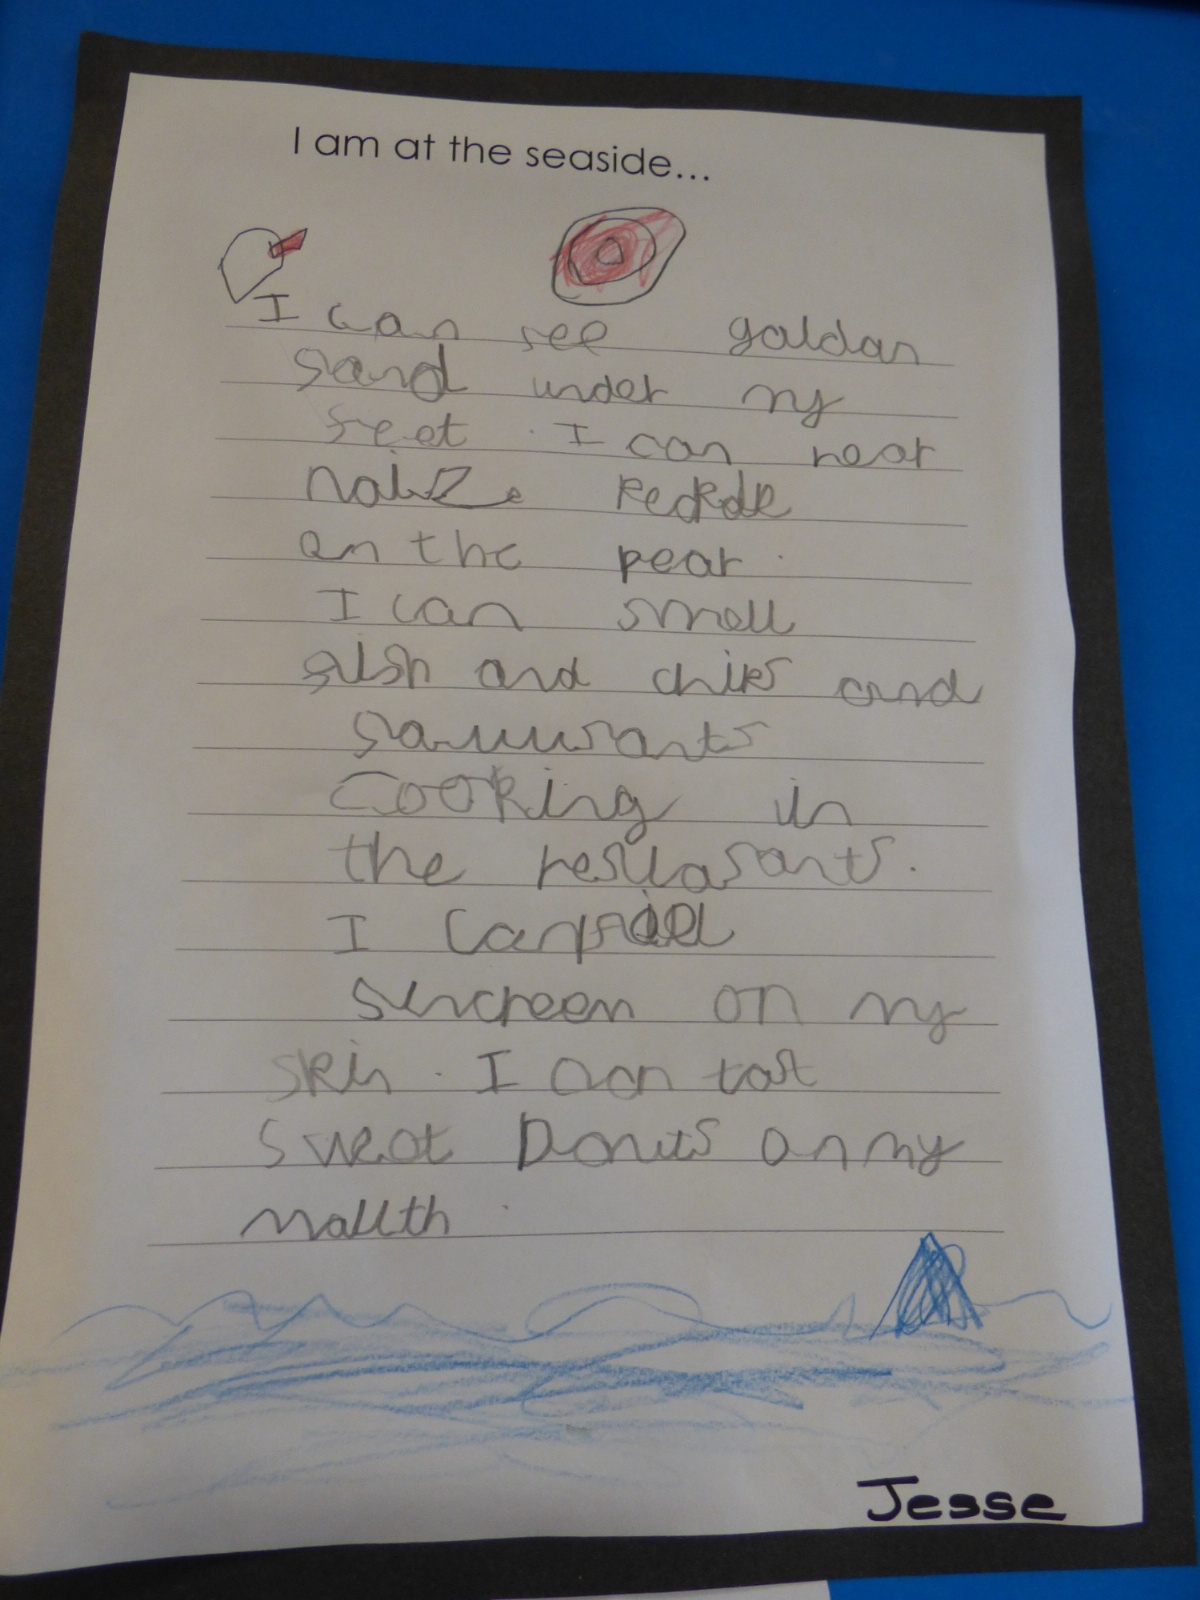 I am at the seaside...
I can see goldan
sand under my
feet. I can hear
noize
on the pear.
I can smell
fish and chips and

cooking in
the
I can feel
suncreem on my
skin. I can tast
sweet Donuts on my
mouth.
Jesse